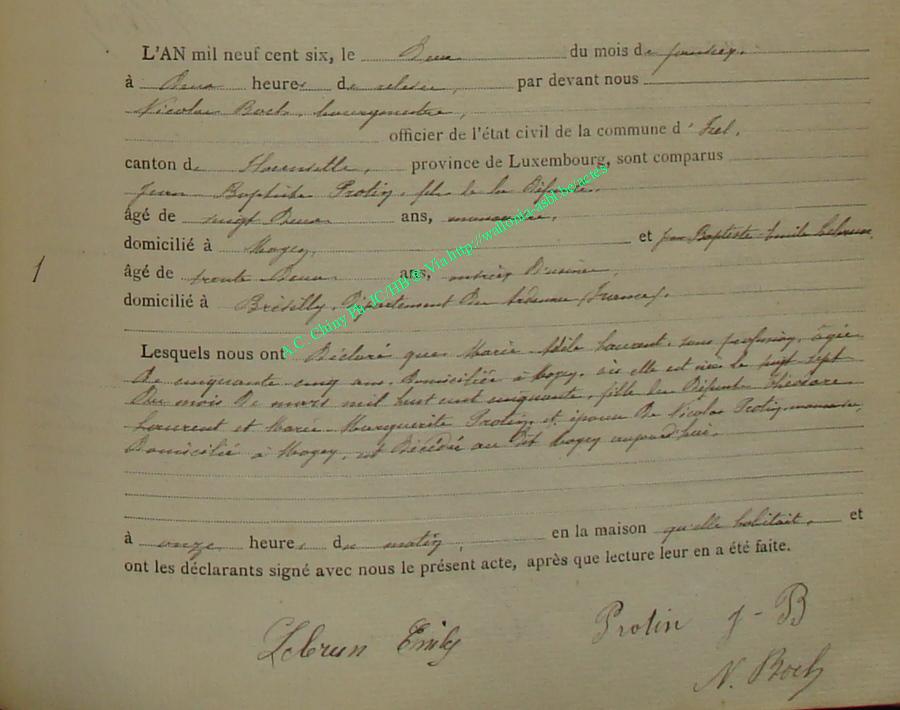 L'AN mil neuf cent six, le Deux du mois de janvier.
à Deux heures de relevée, par devant nous
Nicolas Boch, bourgmestre,
officier de l'état civil de la commune d'
canton de province de Luxembourg, sont comparus
Jean Baptiste Protin, fils de la Défunte,
âgé de vingt Deux ans, manœuvre,
domicilié à Mogey, et Jean Baptiste Emile Lebrun,
1
âgé de trente Deux ans, ouvrier D'usine,
domicilié à Brévilly, Département Des Ardennes (France).
A.C. Chiny Ph. JC/HB © Via http://wallonia-asbl.be/actes
Lesquels nous ont Déclaré que Marie Adile Laurent, sans profession, âgée
De cinquante cinq ans, Domiciliée à Mogey, où elle est née le vingt sept
Du mois De mars mil huit cent cinquante, fille Des Défunts Théodore
Laurent et Marie Marguerite Protin, et épouse De Nicolas Protin, manœuvre,
Domicilié à Mogey, est Décédée au Dit Mogey aujourd'hui,
à onze heures du matin, en la maison qu'elle habitait, et
ont les déclarants signé avec nous le présent acte, après que lecture leur en a été faite.
Lebrun Emile Protin J-B
N. Boch